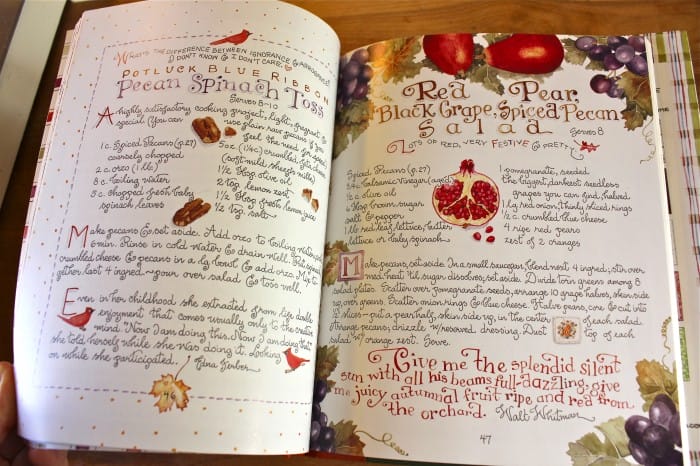 WHAT'S THE DIFFERENCE BETWEEN IGNORANCE & APATHY?
I DON'T KNOW & I DON'T CARE.
POTLUCK BLUE RIBBON
Pecan Spinach Toss
Serves 8-10
A highly satisfactory cooking project, light, elegant &
special. (You can use plain raw pecans if you
feel the need for speed.)
1 c. Spiced Pecans (p.27)
coarsely chopped
2 c. orzo (1 lb.)
8 c. boiling water
5 c. chopped fresh baby
spinach leaves
5 oz. (1¼ c.) crumbled feta cheese
(soft mild sheep's milk)
1½ Tbsp. olive oil
2 tsp. lemon zest
1½ Tbsp. fresh lemon juice
½ tsp. salt
Make pecans & set aside. Add orzo to boiling water,
6 min. Rinse in cold water & drain well. Put spinach,
crumbled cheese & pecans in a lg. bowl & add orzo. Mix to-
gether last 4 ingred. ~ pour over salad & toss well.
Even in her childhood she extracted from life double
enjoyment that comes usually only to the creative
mind. "Now I am doing this. Now I am doing that,"
she told herself while she was doing it. Looking
on while she participated. Edna Ferber
46
Red Pear,
Black Grape, Spiced Pecan
Salad
Serves 8
LOTS OF RED, VERY FESTIVE & PRETTY
Spiced Pecans (p.27)
¾ c. balsamic vinegar (aged)
½ c. olive oil
2 Tbsp. brown sugar
salt & pepper
1 lb. red leaf lettuce, butter
lettuce or baby spinach
1 pomegranate, seeded
the biggest, darkest seedless
grapes you can find, halved
1 lg. red onion, thinly sliced, rings
1½ c. crumbled blue cheese
4 ripe red pears
zest of 2 oranges
Make pecans, set aside. In a small saucepan, blend next 4 ingred.; stir over
med. heat 'til sugar dissolves, set aside. Divide torn greens among 8
salad plates. Scatter over pomegranate seeds, arrange 10 grape halves, skin side
up, over greens. Scatter onion rings & blue cheese. Halve pears, core & cut into
½" slices - put a pear half, skin side up, in the center of each salad.
Arrange pecans; drizzle w/reserved dressing. Dust top of each
salad w/ orange zest. Serve.
Give me the splendid silent
sun with all his beams full-dazzling; give
me juicy autumnal fruit ripe and red from
the orchard. Walt Whitman
47